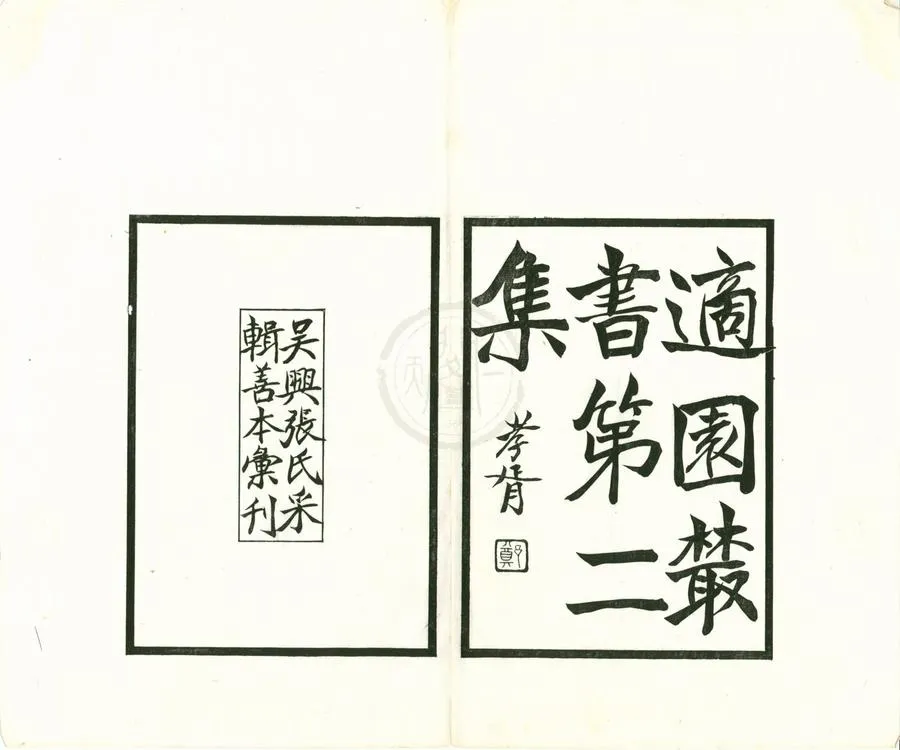 適園叢
書第二
集
孝胥
鄭
吴興張氏采
輯善本彙刊